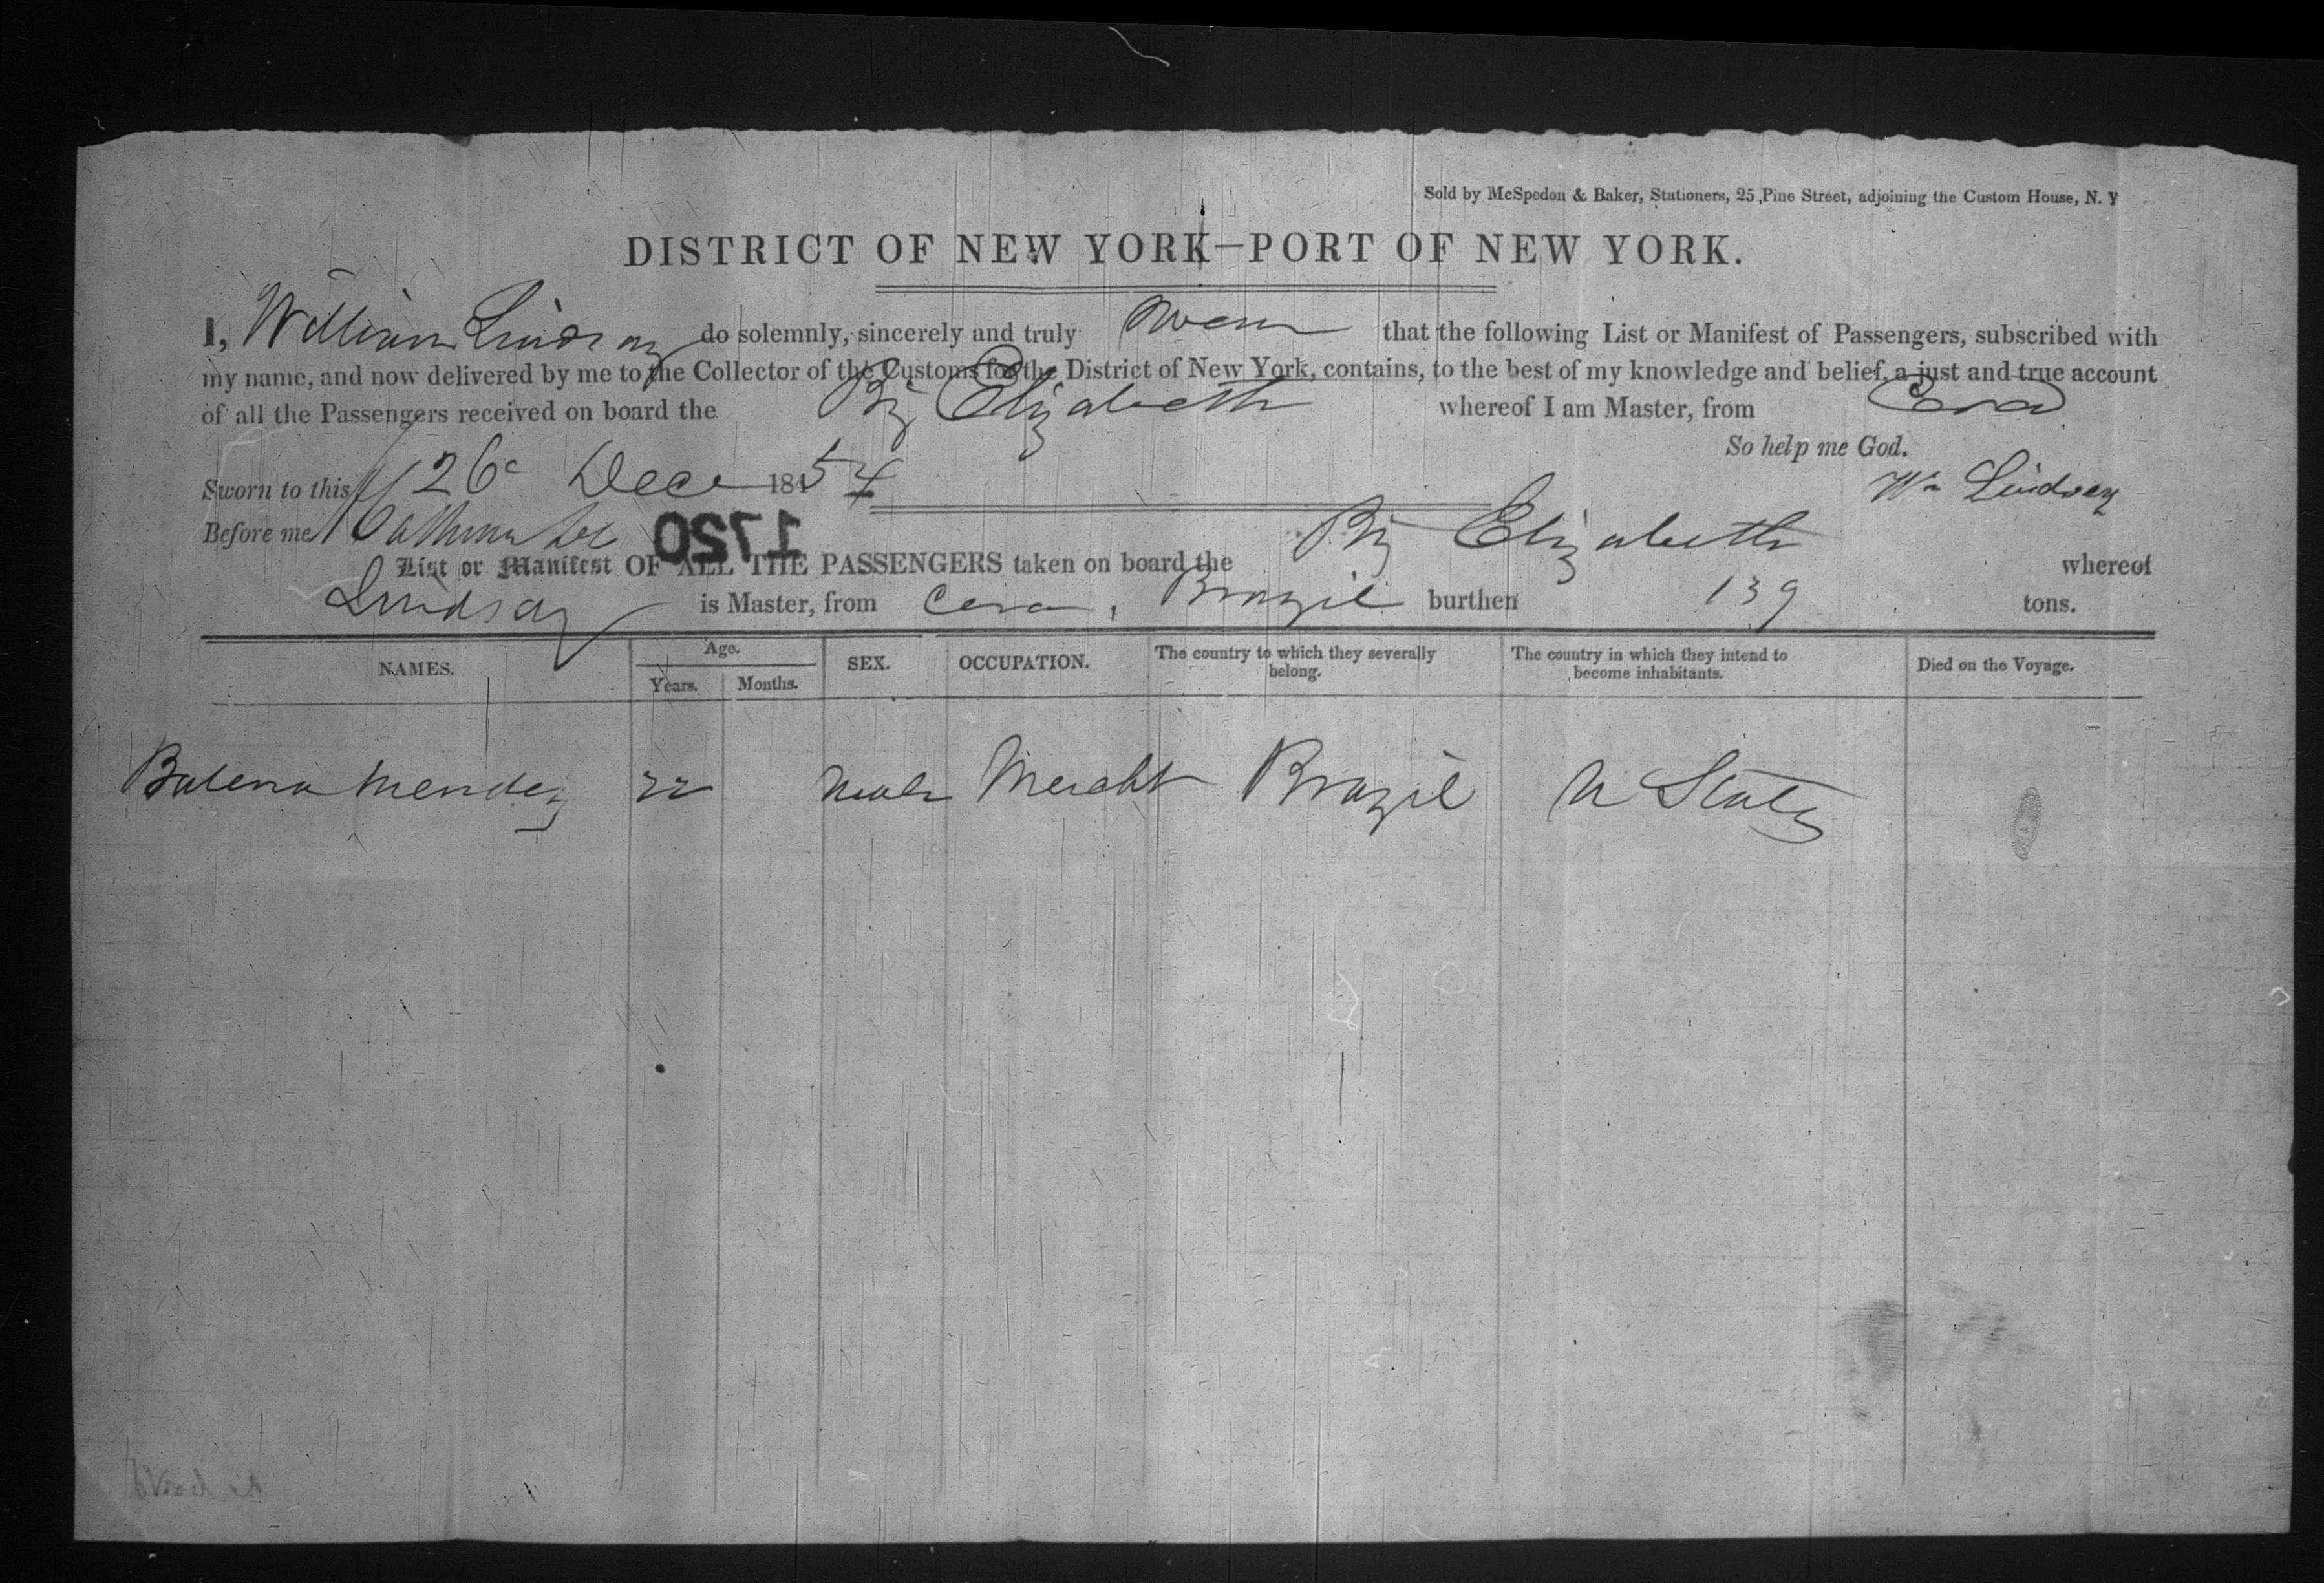 Sold by McSpedon & Baker, Stationers, 25 Pine Street, adjoining the Custom House, N. Y
DISTRICT OF NEW YORK—PORT OF NEW YORK.
I, William Lindsay do solemnly, sincerely and truly swear that the following List or Manifest of Passengers, subscribed with
my name, and now delivered by me to the Collector of the Customs for the District of New York, contains, to the best of my knowledge and belief, a just and true account
of all the Passengers received on board the Brig Elizabeth whereof I am Master, from Ceara
So help me God.
Sworn to this 26 Dece 1854
Wm Lindsay
Before me
1720
List or Manifest OF ALL THE PASSENGERS taken on board the Brig Elizabeth whereof
Lindsay is Master, from Ceara, Brazil burthen 139 tons.
NAMES. Age. Years. Months. SEX. OCCUPATION. The country to which they severally belong. The country in which they intend to become inhabitants. Died on the Voyage.
Mendez 22 Male Mercht Brazil U States